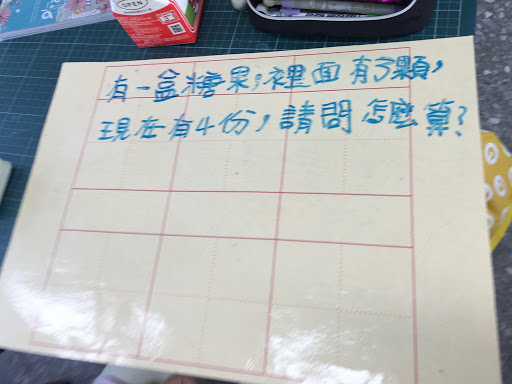 OPEN
有一盒糖果,裡面有3顆,
現在有4份,請問怎麼算?